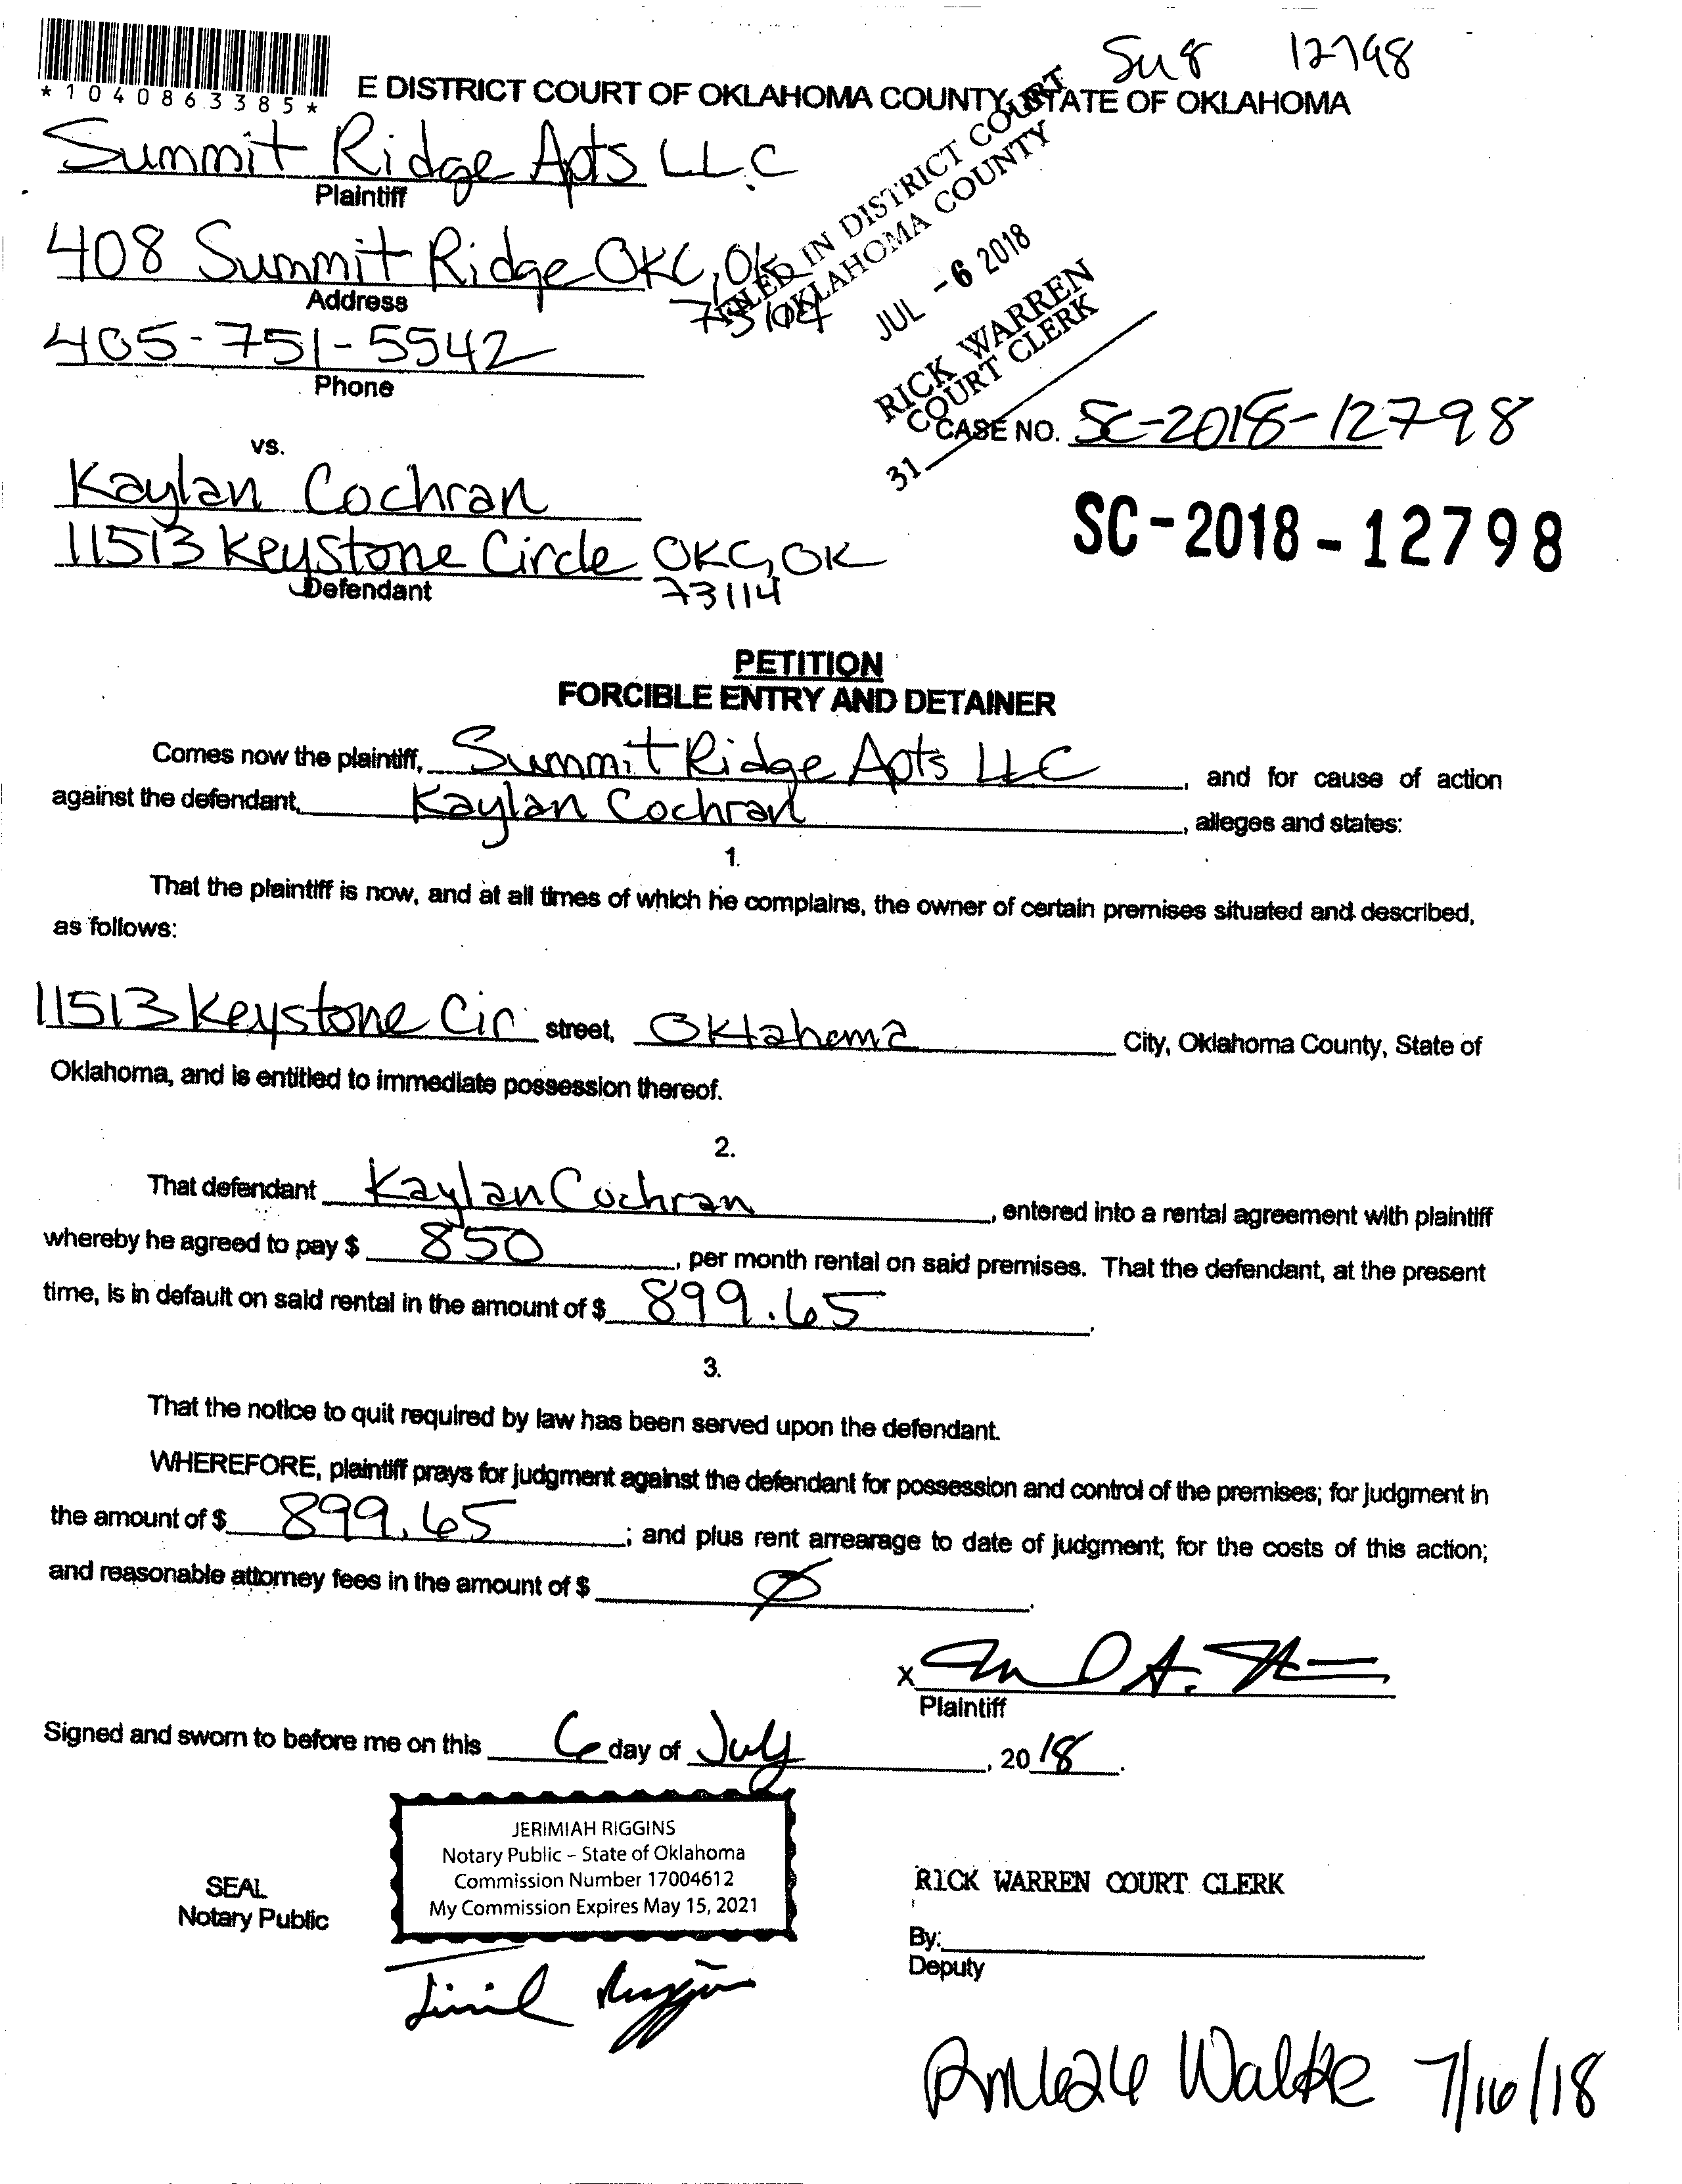 Su8 12798
*1040863385*
E DISTRICT COURT OF OKLAHOMA COUNTY, STATE OF OKLAHOMA
Summit Ridge Apts LLC
Plaintiff
408 Summit Ridge OKC, OK
73114
Address
405-751-5542
Phone
FILED IN DISTRICT COURT
OKLAHOMA COUNTY
JUL -6 2018
RICK WARREN
COURT CLERK
31
CASE NO. SC-2018-12798
vs.
Kaylan Cochran
11513 Keystone Circle OKC, OK
73114
Defendant
SC-2018-12798
PETITION
FORCIBLE ENTRY AND DETAINER
Comes now the plaintiff, Summit Ridge Apts LLC, and for cause of action
against the defendant, Kaylan Cochran, alleges and states:
1.
That the plaintiff is now, and at all times of which he complains, the owner of certain premises situated and described,
as follows:
11513 Keystone Cir street, Oklahoma City, Oklahoma County, State of
Oklahoma, and is entitled to immediate possession thereof.
2.
That defendant Kaylan Cochran, entered into a rental agreement with plaintiff
whereby he agreed to pay $ 850, per month rental on said premises. That the defendant, at the present
time, is in default on said rental in the amount of $ 899.65.
3.
That the notice to quit required by law has been served upon the defendant.
WHEREFORE, plaintiff prays for judgment against the defendant for possession and control of the premises; for judgment in
the amount of $ 899.65; and plus rent arrearage to date of judgment; for the costs of this action;
and reasonable attorney fees in the amount of $ Ø.
X
Plaintiff
Signed and sworn to before me on this 6 day of July, 2018.
JERIMIAH RIGGINS
Notary Public – State of Oklahoma
Commission Number 17004612
My Commission Expires May 15, 2021
SEAL
Notary Public
RICK WARREN COURT CLERK
By:
Deputy
Rm 626 Walke 7/16/18